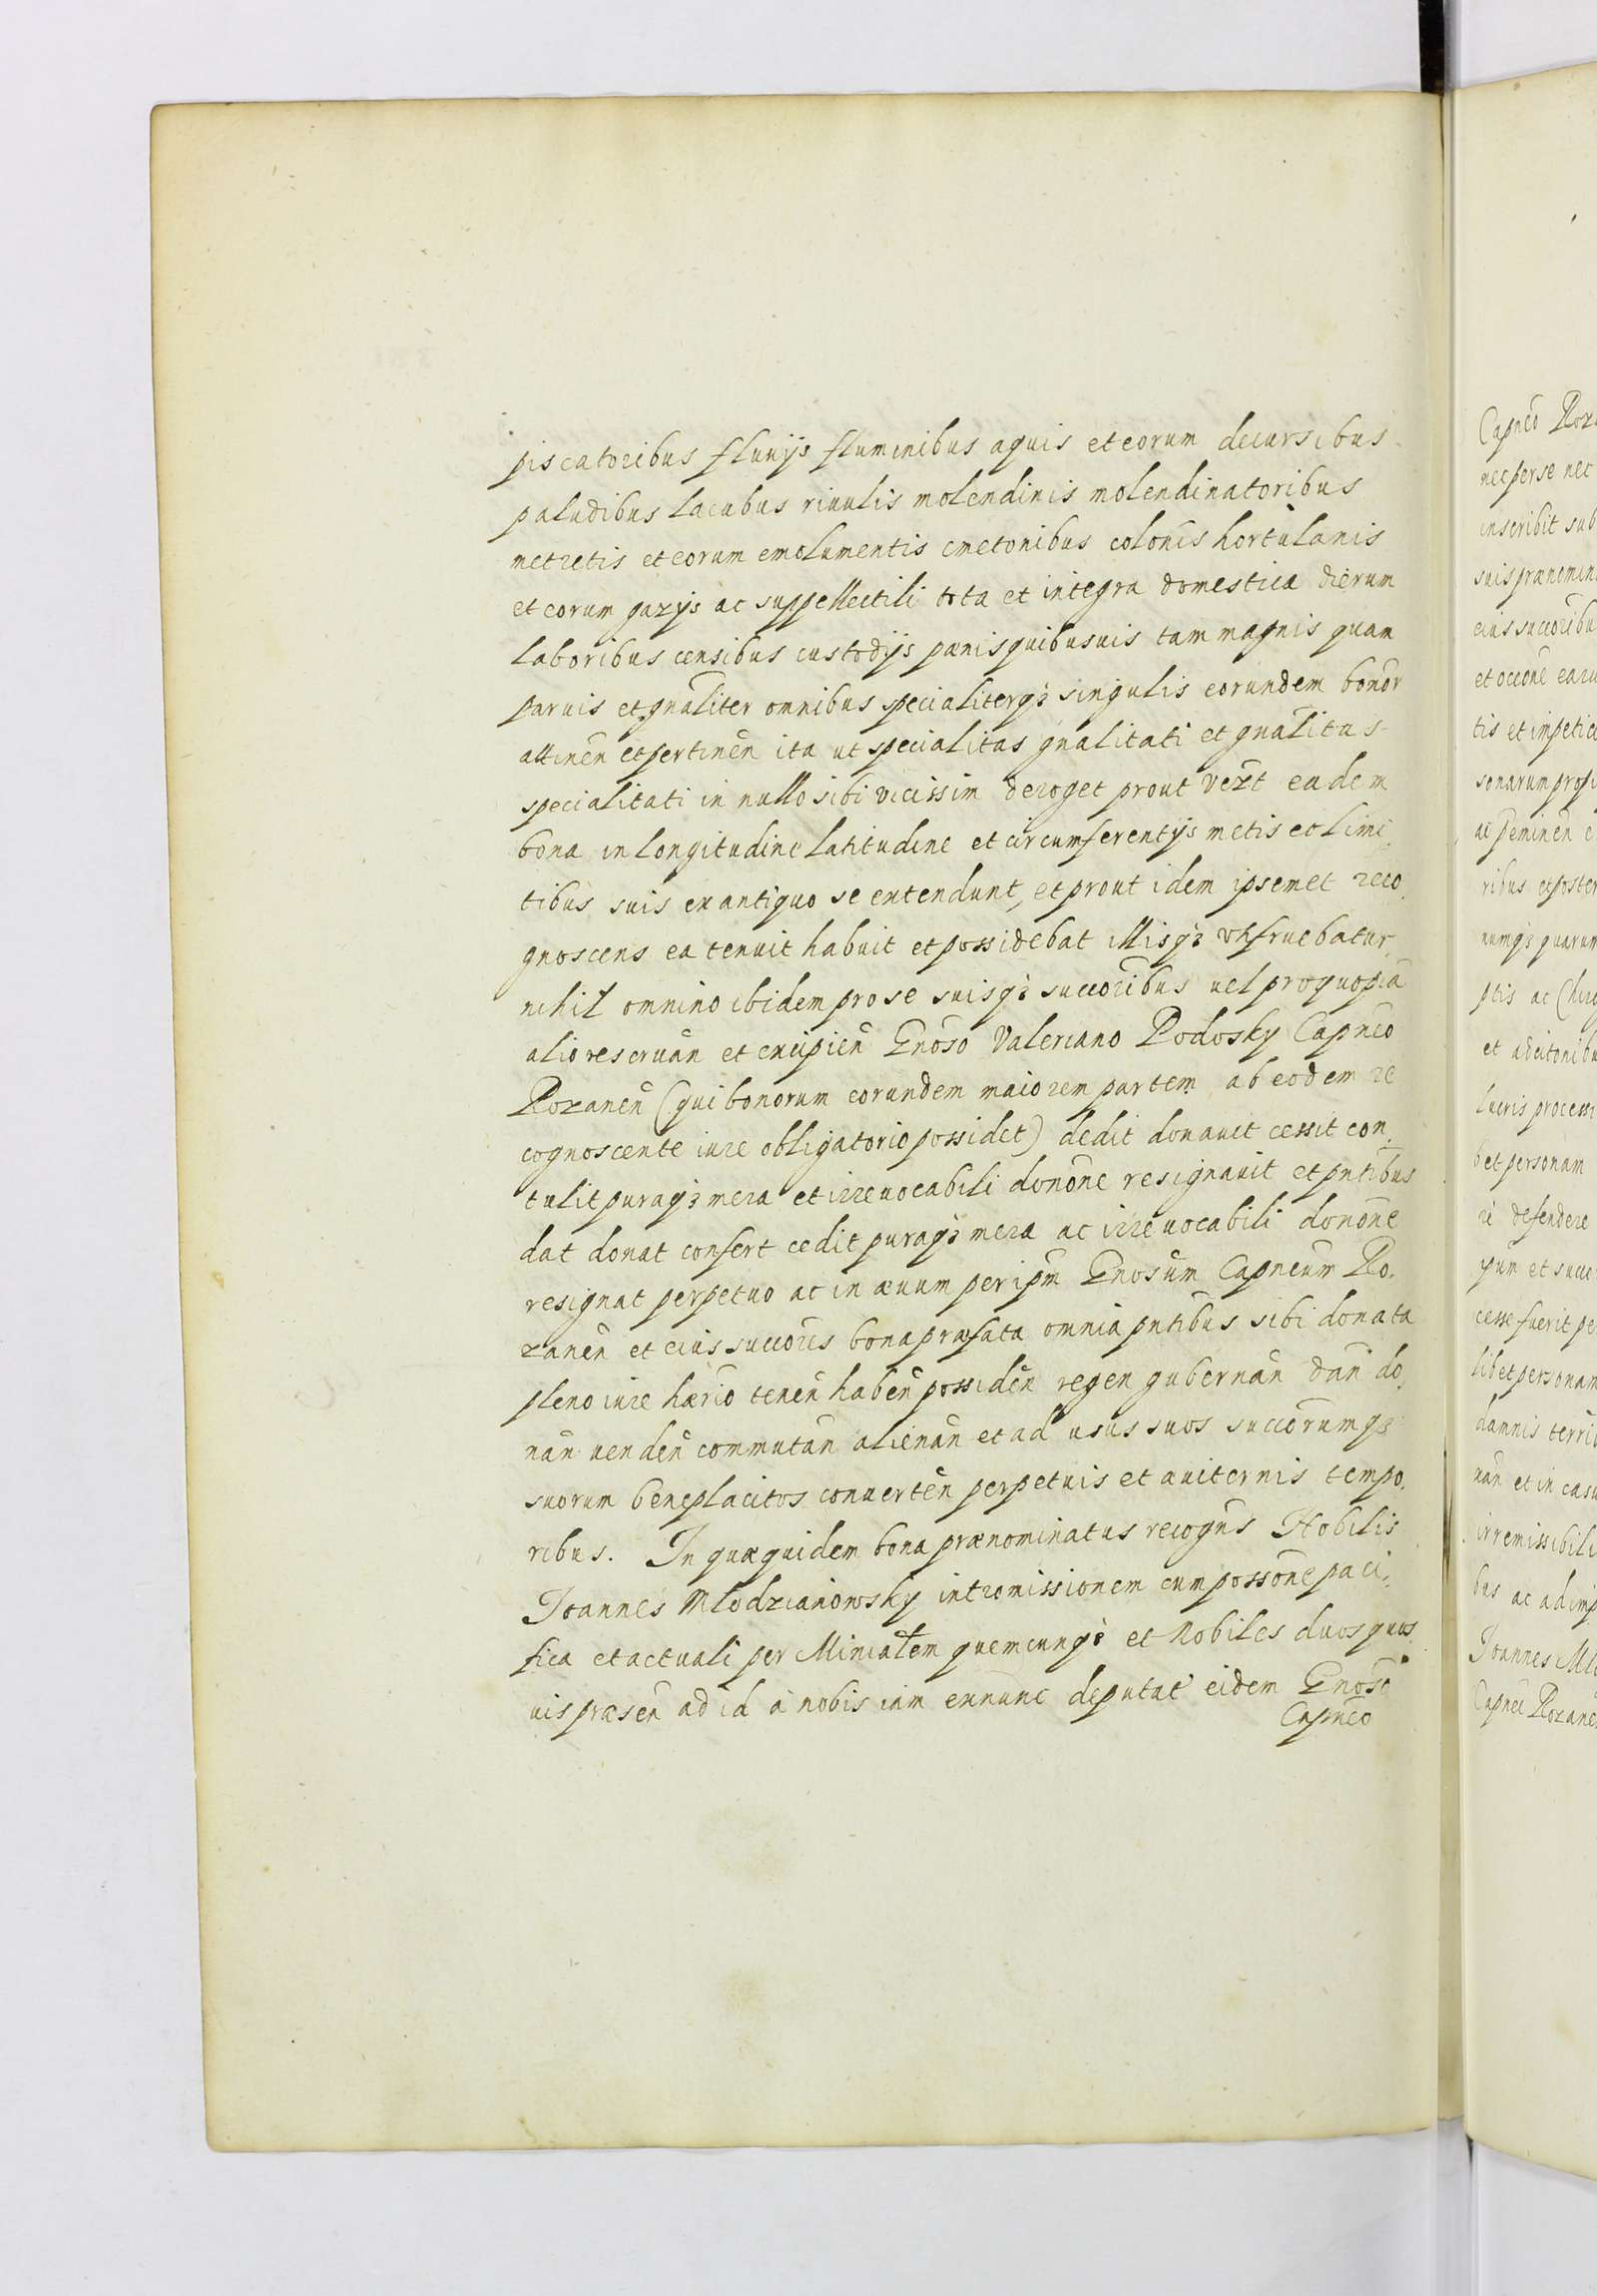 piscatoribus fluuijs fluminibus aquis et eorum decursibus
paludibus lacubus riuulis molendinis molendinatoribus
metretis et eorum emolumentis cmetonibus colonis hortulanis
et eorum gazijs ac suppellectili tota et integra domestica dierum
laboribus censibus custodijs pænis quibusuis tam magnis quam
paruis et gnaliter omnibus specialiterq3 singulis eorundem bonor
attinen et pertinen ita ut specialitas gnalitati et gnalitas
specialitati in nullo sibi vicissim deroget prout vezt eadem
bona in longitudine latitudine et circumferentijs metis et limi
tibus suis ex antiquo se extendunt, et prout idem ipsemet reco
gnoscens ea tenuit habuit et possidebat illisq3 utifruebatur
nihil omnino ibidem pro se suisq3 succoribus uel pro quopia
alio reseruan et excipien Gnoso Valeriano Podosky Capneo
Rozanen (qui bonorum eorundem maiorem partem ab eodem re
cognoscente iure obligatorio possidet) dedit donauit cessit con
tulit puraq3 mera et irreuocabili donone resignauit et pntibus
dat donat confert cedit puraq3 mera ac irreuocabili donone
resignat perpetuo ac in æuum per ipm Gnosum Capneum Ro
zanen et eius succores bona præfata omnia pntibus sibi donata
pleno iure hærio tenen haben possiden regen gubernan dan do
nan uenden commutan alienan et ad usus suos succorumq3
suorum beneplacitos conuerten perpetuis et auiternis tempo
ribus. In quæquidem bona prænominatus recogns Nobilis
Joannes Mlodzianowsky intromissionem cum possone paci
fica et actuali per Minialem quemcunq3 et Nobiles duos quos
uis præsen ad id à nobis iam exnunc deputat eidem Gnoso
Capneo
Capneo Roza
nec per se nec
inscribit sub
suis prænomin
eius succoribu
et occone earu
tis et impetic
sonarum prop
ac peminen e
ribus et poster
numq3 quarum
ptis ac Chiro
et adcitonibu
lucris processi
bet personam
re defendere
ipum et succe
cesse fuerit pe
libet personam
damnis terri
nan et in casu
irremissibili
bus ac adimp
Joannes Ml
Capnei Rozanen